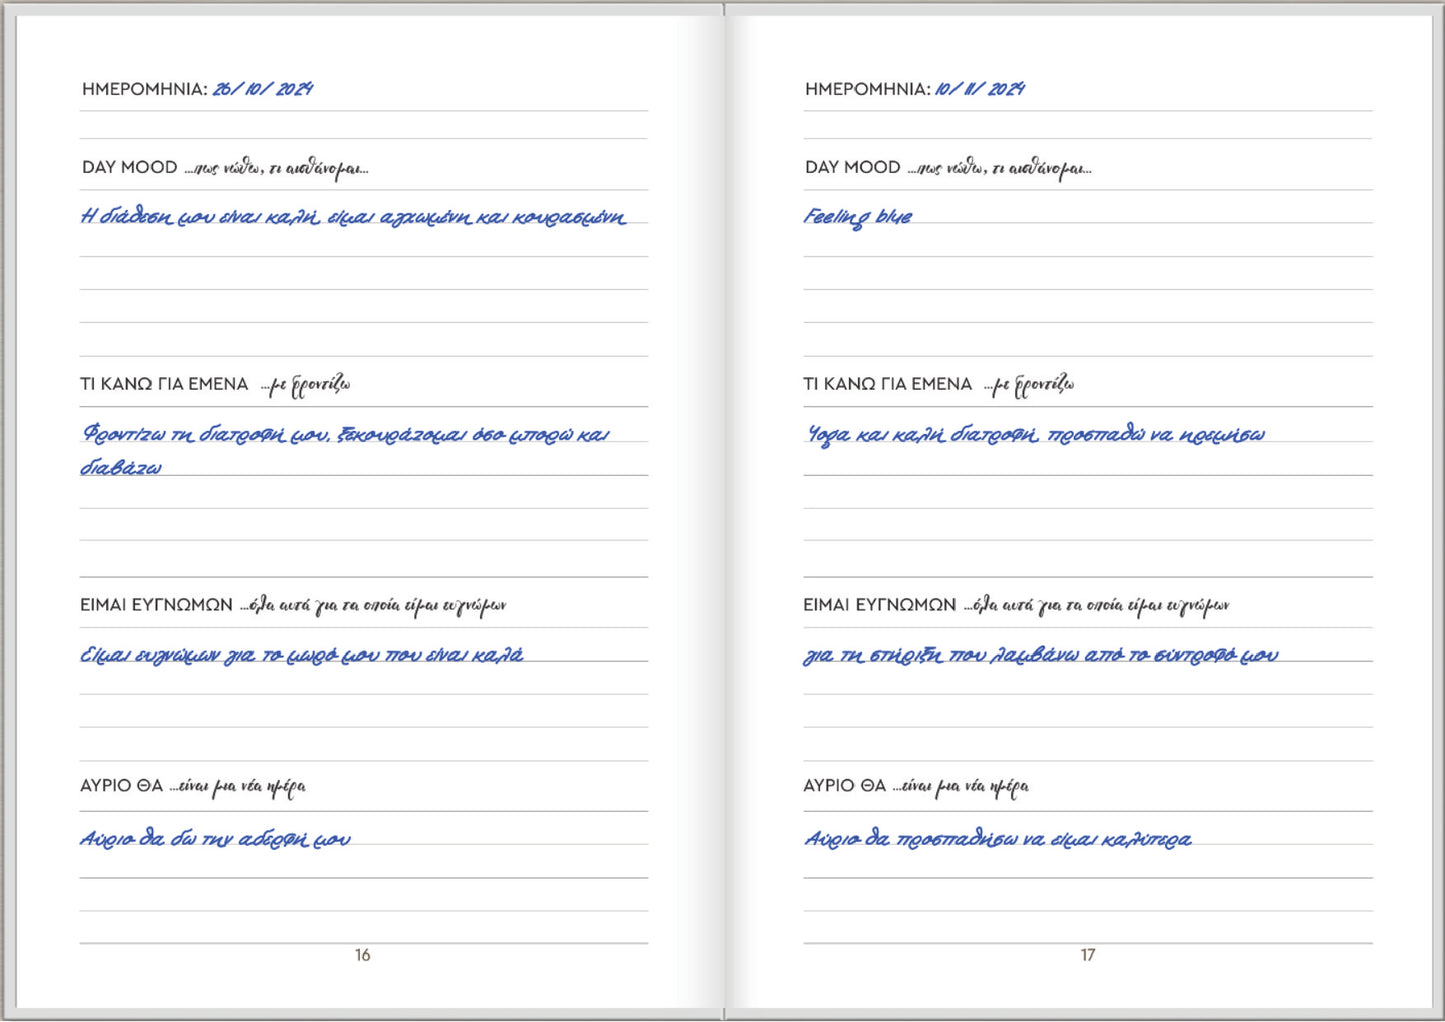 ΗΜΕΡΟΜΗΝΙΑ: 26/10/2024
DAY MOOD ...πως νιώθω, τι αισθάνομαι...
Η διάθεση μου είναι καλή, είμαι αγχωμένη και κουρασμένη
ΤΙ ΚΑΝΩ ΓΙΑ ΕΜΕΝΑ ...με φροντίζω
Φροντίζω τη διατροφή μου, ξεκουράζομαι όσο μπορώ και
διαβάζω
ΕΙΜΑΙ ΕΥΓΝΩΜΩΝ ...όλα αυτά για τα οποία είμαι ευγνώμων
Είμαι ευγνώμων για το μωρό μου που είναι καλά
ΑΥΡΙΟ ΘΑ ...είναι μια νέα ημέρα
Αύριο θα δω την αδερφή μου
16
ΗΜΕΡΟΜΗΝΙΑ: 10/11/2024
DAY MOOD ...πως νιώθω, τι αισθάνομαι...
Feeling blue
ΤΙ ΚΑΝΩ ΓΙΑ ΕΜΕΝΑ ...με φροντίζω
Yoga και καλή διατροφή, προσπαθώ να ηρεμήσω
ΕΙΜΑΙ ΕΥΓΝΩΜΩΝ ...όλα αυτά για τα οποία είμαι ευγνώμων
για τη στήριξη που λαμβάνω από το σύντροφό μου
ΑΥΡΙΟ ΘΑ ...είναι μια νέα ημέρα
Αύριο θα προσπαθήσω να είμαι καλύτερα
17